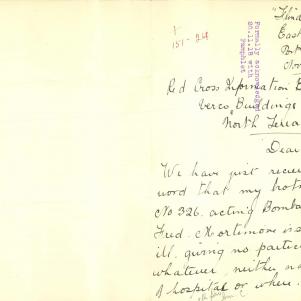 "Flind
East
Nov
Formally acknowledged
30.11.16 with
Pamphlet
Red Cross Information B
Verco Buildings
North Terra
Dear
We have just recei
word that my brot
No 326. acting Bomba
Fred. Mortimore is s
ill, giving no partic
whatever, neither na
of hospital or where